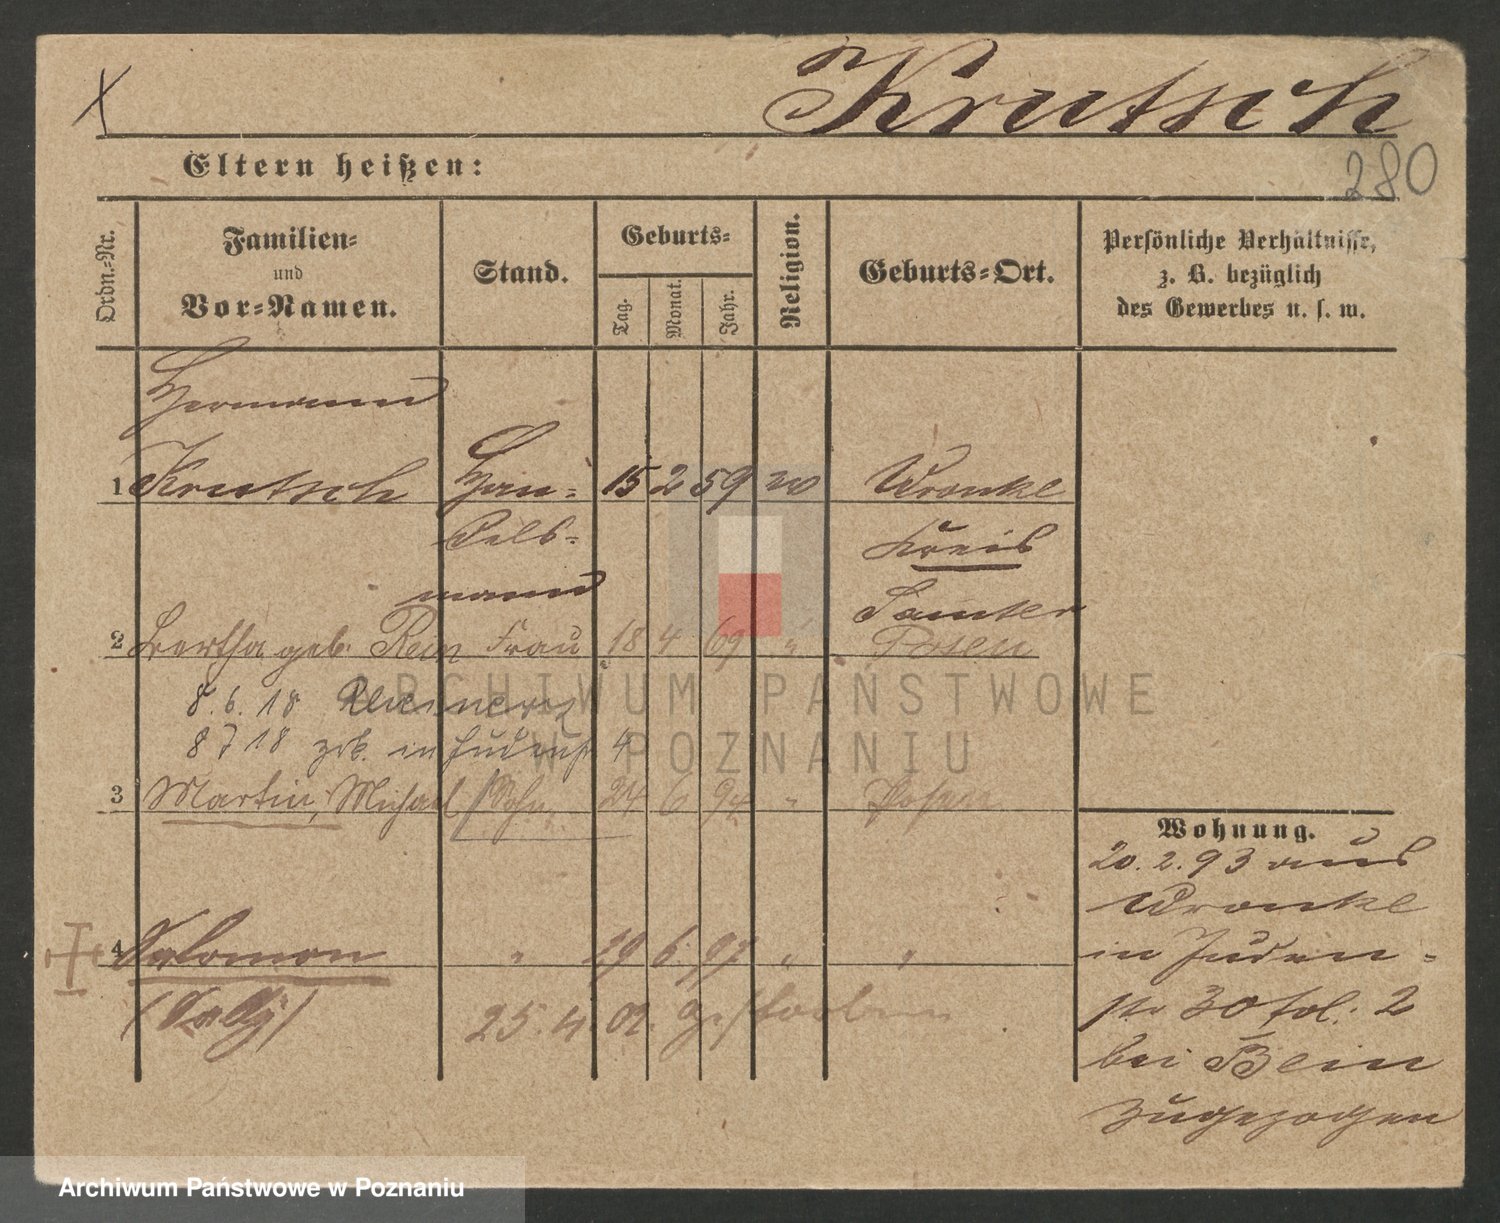 Krutsch
280
Eltern heißen:
Ordn.-Nr.
Familien-
und
Vor-Namen.
Stand.
Geburts-
Tag.
Monat.
Jahr.
Religion.
Geburts-Ort.
Persönliche Verhältnisse,
z. B. bezüglich
des Gewerbes u. s. w.
Hermann
1 Krutsch Han- 15 2 59 Wronke
dels- Kreis
mann Samter
2 Bertha geb. Rein Frau 18 4 69 " Posen
8.6.18
8 7 18 zrk. in Judenstr 4
3 Martin, Michael Sohn 24 6 94 " Posen
4 Salomon " 29 6 97 " "
(Sally) 25. 4. 02. gestorben
Wohnung.
20.2.93 aus
Wronke
in Juden-
str 30 fol. 2
bei
zugezogen
ARCHIWUM PAŃSTWOWE
W POZNANIU
Archiwum Państwowe w Poznaniu